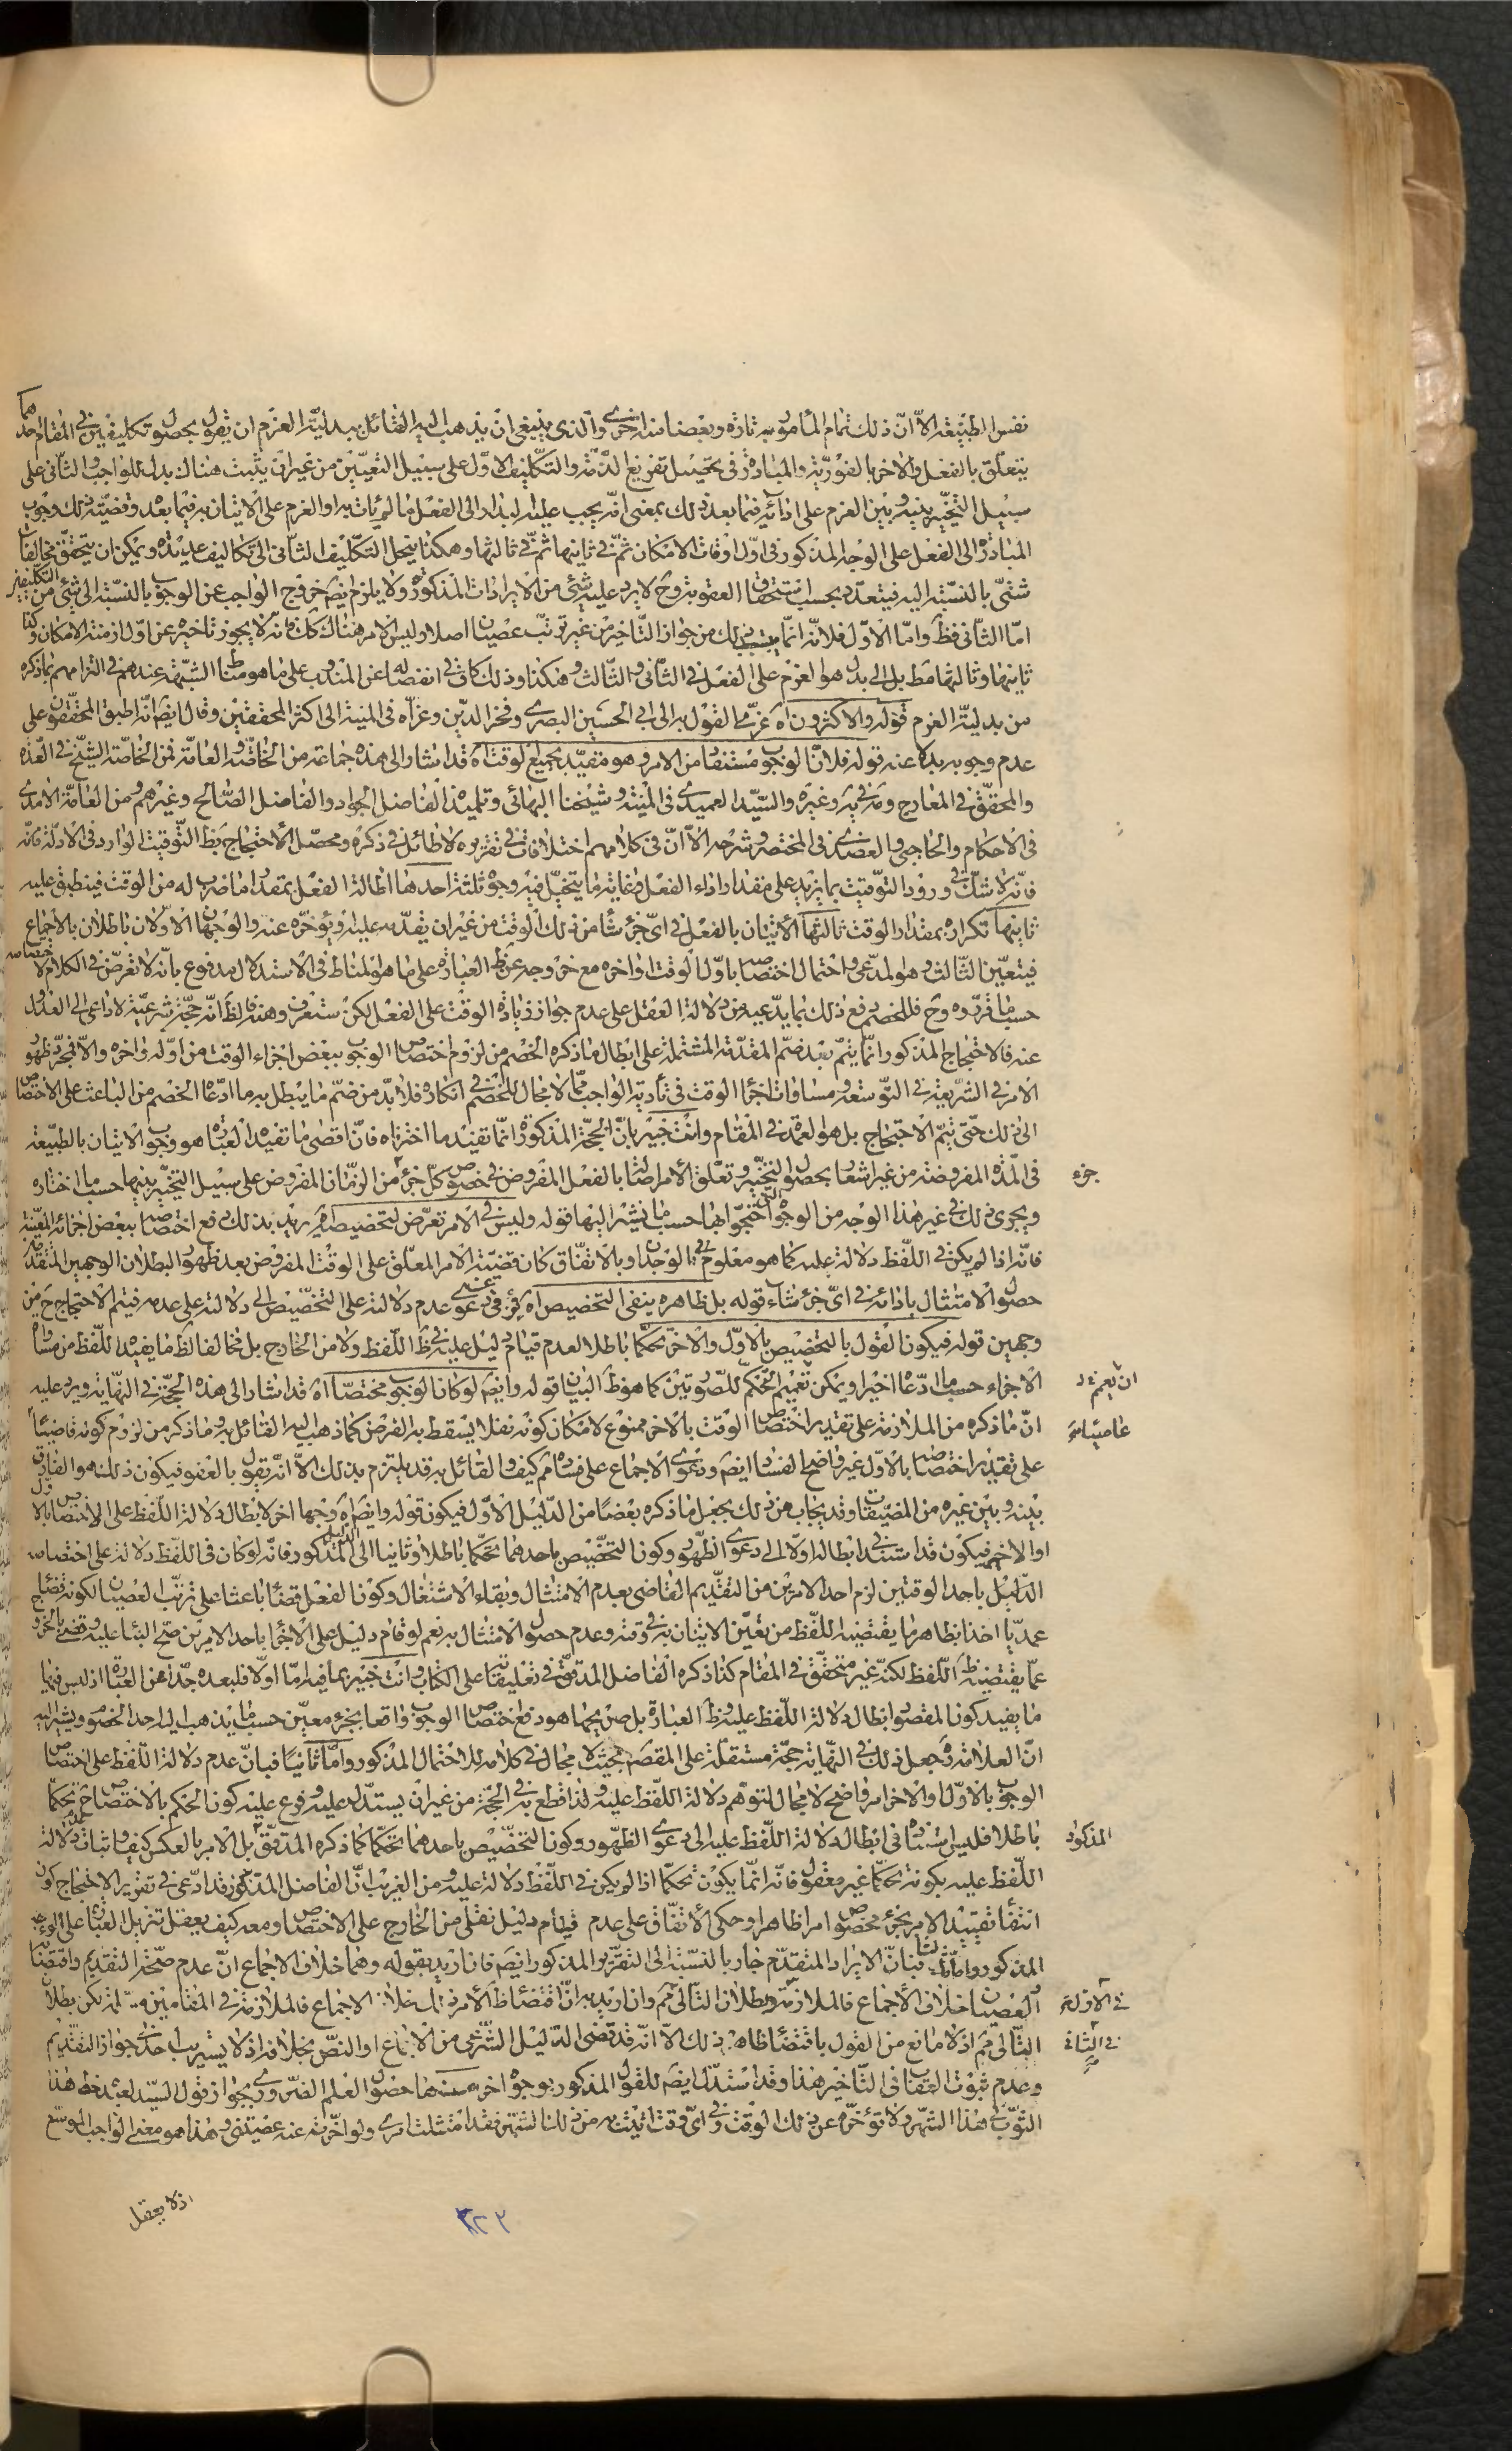 نفس الطبيعة الا ان ذلك تمام المأمور به تارة وبعضا منه اخرى والذى ينبغى ان يذهب اليه القائل ببدلية العزم ان يقول بحصول تكليفين فى المقام احدهما
يتعلق بالفعل والاخر بالفورية والمبادرة فى تحصيل تفريغ الذمة والتكليف الاول على سبيل التعيين من غير ان يثبت هناك بدل للواجب والثانى على
سبيل التخيير بينه وبين العزم على ادائه فيما بعد ذلك بمعنى انه يجب عليه البدار الى الفعل ما لم يأت به او العزم على الاتيان به فيما بعد وقضية ذلك وجوب
المبادرة الى الفعل على الوجه المذكور فى اول اوقات الامكان ثم فى ثانيها ثم فى ثالثها وهكذا ينحل التكليف الثانى الى تكاليف عديدة ويمكن ان يتحقق مخالفات
شتى بالنسبة اليه فيتعدد بحسبها استحقاق العقوبة وح لا يرد عليه شئ من الايرادات المذكورة ولا يلزم ايضا خروج الواجب عن الوجوب بالنسبة الى شئ من التكليفين
اما الثانى فظ واما الاول فلانه انما يلزم ذلك من جواز التأخير من غير ترتب عصيان اصلا وليس الامر هناك كك فانه لا يجوز تأخيره عن اول ازمنة الامكان وكذا
ثانيها وثالثها مط بل الى بدل هو العزم على الفعل فى الثانى والثالث وهكذا وذلك كاف فى انفصاله عن المندوب على ما هو مناط الشبهة عندهم فى التزامهم بما ذكره
من بدلية العزم قوله والاكثرون اه عزى القول به الى ابى الحسين البصرى وفخر الدين وعزاه فى المنية الى اكثر المحققين وقال ايضا انه اطبق المحققون على
عدم وجوبه بدلا عنه قوله فلان الوجوب مستفاد من الامر وهو مقيد بجميع الوقت اه قد اشار الى هذه جماعة من الخاصة والعامة فمن الخاصة الشيخ فى العدة
والمحقق فى المعارج ومه فى يه وغيره والسيد العميدى فى المنية وشيخنا البهائى وتلميذه الفاضل الجواد والفاضل الصالح وغيرهم ومن العامة الآمدى
فى الاحكام والحاجبى والعضدى فى المختصر وشرحه الا ان فى كلامهم اختلافات فى تقريره لا طائل فى ذكره ومحصل الاحتجاج بظ التوقيت الوارد فى الادلة فانه
فانه لا شك فى ورود التوقيت بما يزيد على مقدار اداء الفعل وغاية ما يتخيل فيه وجوه ثلثة احدها اطالة الفعل بمقدار ما ضرب له من الوقت فينطبق عليه
ثانيها تكراره بمقدار الوقت ثالثها الاتيان بالفعل فى اى جزء شاء من ذلك الوقت من غير ان يقدمه عليه ويؤخره عنه والوجهان الاولان باطلان بالاجماع
فيتعين الثالث وهو المدعى واحتمال اختصاصه باول الوقت او اخره مع خروجه عن ظ العبارة على ما هو المناط فى الاستدلال مدفوع بانه لا تعرض فى الكلام لاختصاصه
حسب ما قرروه وح فللخصم رفع ذلك بما يدعيه من دلالة العقل على عدم جواز زيادة الوقت على الفعل لكن ستعرف وهنه والظ انه حجة شرعية لا داعى الى العدول
عنه فالاحتجاج المذكور انما يتم بعد ضم المقدمة المشتملة على ابطال ما ذكره الخصم من لزوم اختصاص الوجوب ببعض اجزاء الوقت من اوله واخره والا فمجرد ظهور
الامر فى الشريعة فى التوسعة ومساوات اجزاء الوقت فى تأدية الواجب مما لا مجال للخصم فى انكاره فلا بد من ضم ما يبطل به ما ادعاه الخصم من الباعث على الاختصاص
الى ذلك حتى يتم الاحتجاج بل هو العمدة فى المقام وانت خبير بان الحجة المذكورة انما تفيد ما اخترناه فان اقصى ما تفيده العبارة هو وجوب الاتيان بالطبيعة
فى المدة المفروضة من غير اشعار بحصول التخيير وتعلق الامر اصالة بالفعل المفروض فى خصوص كل جزء من الزمان المفروض على سبيل التخيير بينها حسب ما اختاره
جزء
ويجرى ذلك فى غير هذا الوجه من الوجوه التى احتجوا بها حسب ما نشير اليها قوله وليس فى الامر تعرض لتخصيصه اه يريد بذلك دفع اختصاصه ببعض اجزائه المعينة
فانه اذا لم يكن فى اللفظ دلالة عليه كما هو معلوم بالوجدان وبالاتفاق كان قضية الامر المعلق على الوقت المفروض بعد ظهور البطلان الوجهين المتقدمين
حصول الامتثال بادائه فى اى جزء شاء قوله بل ظاهره ينفى التخصيص اه فى دعوى عدم دلالته على التخصيص الى دلالته على عدمه فيتم الاحتجاج ح من
وجهين قوله فيكون القول بالتخصيص بالاول والاخر تحكما باطلا لعدم قيام دليل عليه فى ظ اللفظ ولا من الخارج بل مخالفا لظ ما يفيده اللفظ من مساواة
الاجزاء حسب ما ادعاه اخيرا ويمكن تعميم الحكم للصورتين كما هو ظ البيان قوله وايضا لو كان الوجوب مختصا اه قد اشار الى هذه الحجة فى النهاية ويرد عليه
ان يعمم د
ان ما ذكره من الملازمة على تقدير اختصاص الوقت بالاخر ممنوع لامكان كونه نفلا يسقط به الفرض كما ذهب اليه القائل به وما ذكر من لزوم كونه قاضيا
عاصيا م
على تقدير اختصاصه بالاول غير واضح الفساد ايضا ودعوى الاجماع على فساده مم كيف والقائل به قد يلتزم بذلك الا انه يقول بالعفو فيكون ذلك هو الفارق
بينه وبين غيره من المضيقات وقد يجاب عن ذلك بجعل ما ذكره بعضا من الدليل الاول فيكون قوله وايضا اه وجها اخر لابطال دلالة اللفظ على الاختصاص بالاول
او الاخر فيكون قد استند فى ابطاله اولا الى دعوى الظهور وكون التخصيص باحدهما تحكما باطلا وثانيا الى الدليل المذكور فانه لو كان فى اللفظ دلالة على اختصاص
الدليل باحد الوقتين لزم احد الامرين من التقديم القاضى بعدم الامتثال وبقاء الاشتغال وكون الفعل قضاء باعثا على ترتب العصيان لكونه قضاء
عمديا اخذا بظاهر ما يقتضيه اللفظ من تعين الاتيان به فى وقته وعدم حصول الامتثال به نعم لو قام دليل على الاجزاء باحد الامرين صح البناء عليه
عما يقتضيه ظ اللفظ لكنه غير متحقق فى المقام كذا ذكره الفاضل المدقق فى تعليقاته على الكتاب وانت خبير بما فيه اما اولا فلبعده جدا عن العبارة اذ ليس فيها
ما يفيد كون المقصود ابطال دلالة اللفظ عليه وظ العبارة بل صريحها هو دفع اختصاص الوجوب واقعا بجزء معين حسب ما يذهب اليه احد الخصوم ويشير اليه
ان العلامة ره جعل ذلك فى النهاية حجة مستقلة على المقصد بحيث لا مجال فى كلامه للاحتمال المذكور واما ثانيا فبان عدم دلالة اللفظ على اختصاص
الوجوب بالاول والاخر امر واضح لا مجال لتوهم دلالة اللفظ عليه ولذا قطع به فى الحجة من غير ان يستدل عليه وفرع عليه كون الحكم بالاختصاص ح تحكما
باطلا فليس استناده فى ابطال دلالة اللفظ عليه الى دعوى الظهور وكون التخصيص باحدهما تحكما كما ذكره المدقق بل الامر بالعكس كيف واثبات عدم دلالة
المذكور
اللفظ عليه بكونه تحكما غير معقول فانه انما يكون تحكما اذا لم يكن فى اللفظ دلالة عليه ومن الغريب ان الفاضل المذكور قد ادعى فى تقرير الاحتجاج كون
انتفاء تقييد الامر بجزء مخصوص امرا ظاهرا وحكى الاتفاق على عدم قيام دليل نقلى من الخارج على الاختصاص ومعه كيف يعقل تنزيل العبارة على الوجه
المذكور واما ثالثا فبان الايراد المتقدم جار بالنسبة الى التقرير المذكور ايضا فان اريد بقوله وهما خلاف الاجماع ان عدم صحة التقديم واقتضاء
العصيان خلاف الاجماع فالملازمة وبطلان التالى مم وان اريد به ان اقتضاء ظ الامر ذلك خلاف الاجماع فالملازمة فى المقامين مسلمة لكن بطلان
فى الاول م
التالى مم اذ لا مانع من القول باقتضاء ظاهره ذلك الا انه قد قضى الدليل الشرعى من الاجماع او النص بخلافه اذ لا يستريب احد فى جواز التقديم
فى الثانى م
وعدم ثبوت العقاب فى التأخير هذا وقد استدل ايضا للقول المذكور بوجوه اخر منها حصول العلم الضرورى بجواز قول السيد لعبده خط هذا
الثوب فى هذا الشهر ولا تؤخره عن ذلك الوقت وفى اى وقت اتيت به من ذلك الشهر فقد امتثلت امرى ولو اخرته عنه عصيتنى وهذا هو معنى الواجب الموسع
اذ لا يعقل
٢٢٣